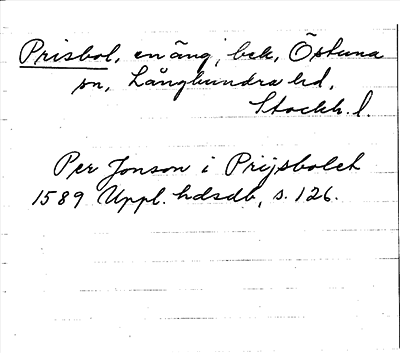 Prisbol, en äng, bek, Östuna
sn, Långhundra hd,
Stockh. l.
Per Jonson i Prijsbolet
1589 Uppl. hdsdb, s. 126.